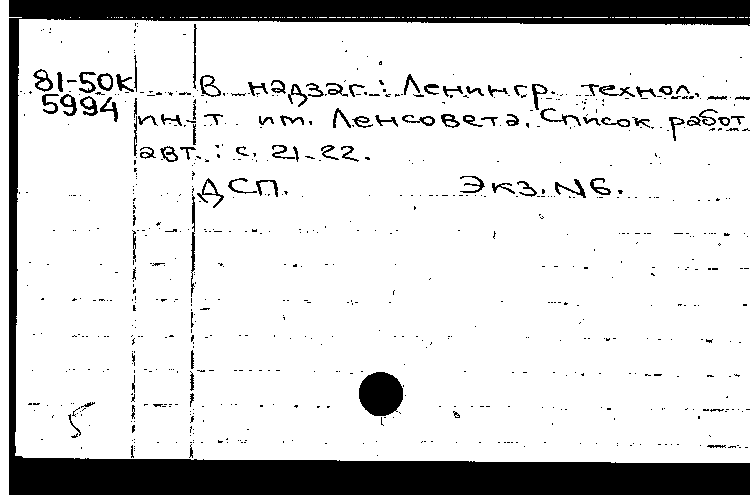 81-50к В надзаг.: Ленингр. технол.
5994 ин-т им. Ленсовета. Список работ
авт.: с. 21-22.
ДСП. Экз. N6.
5